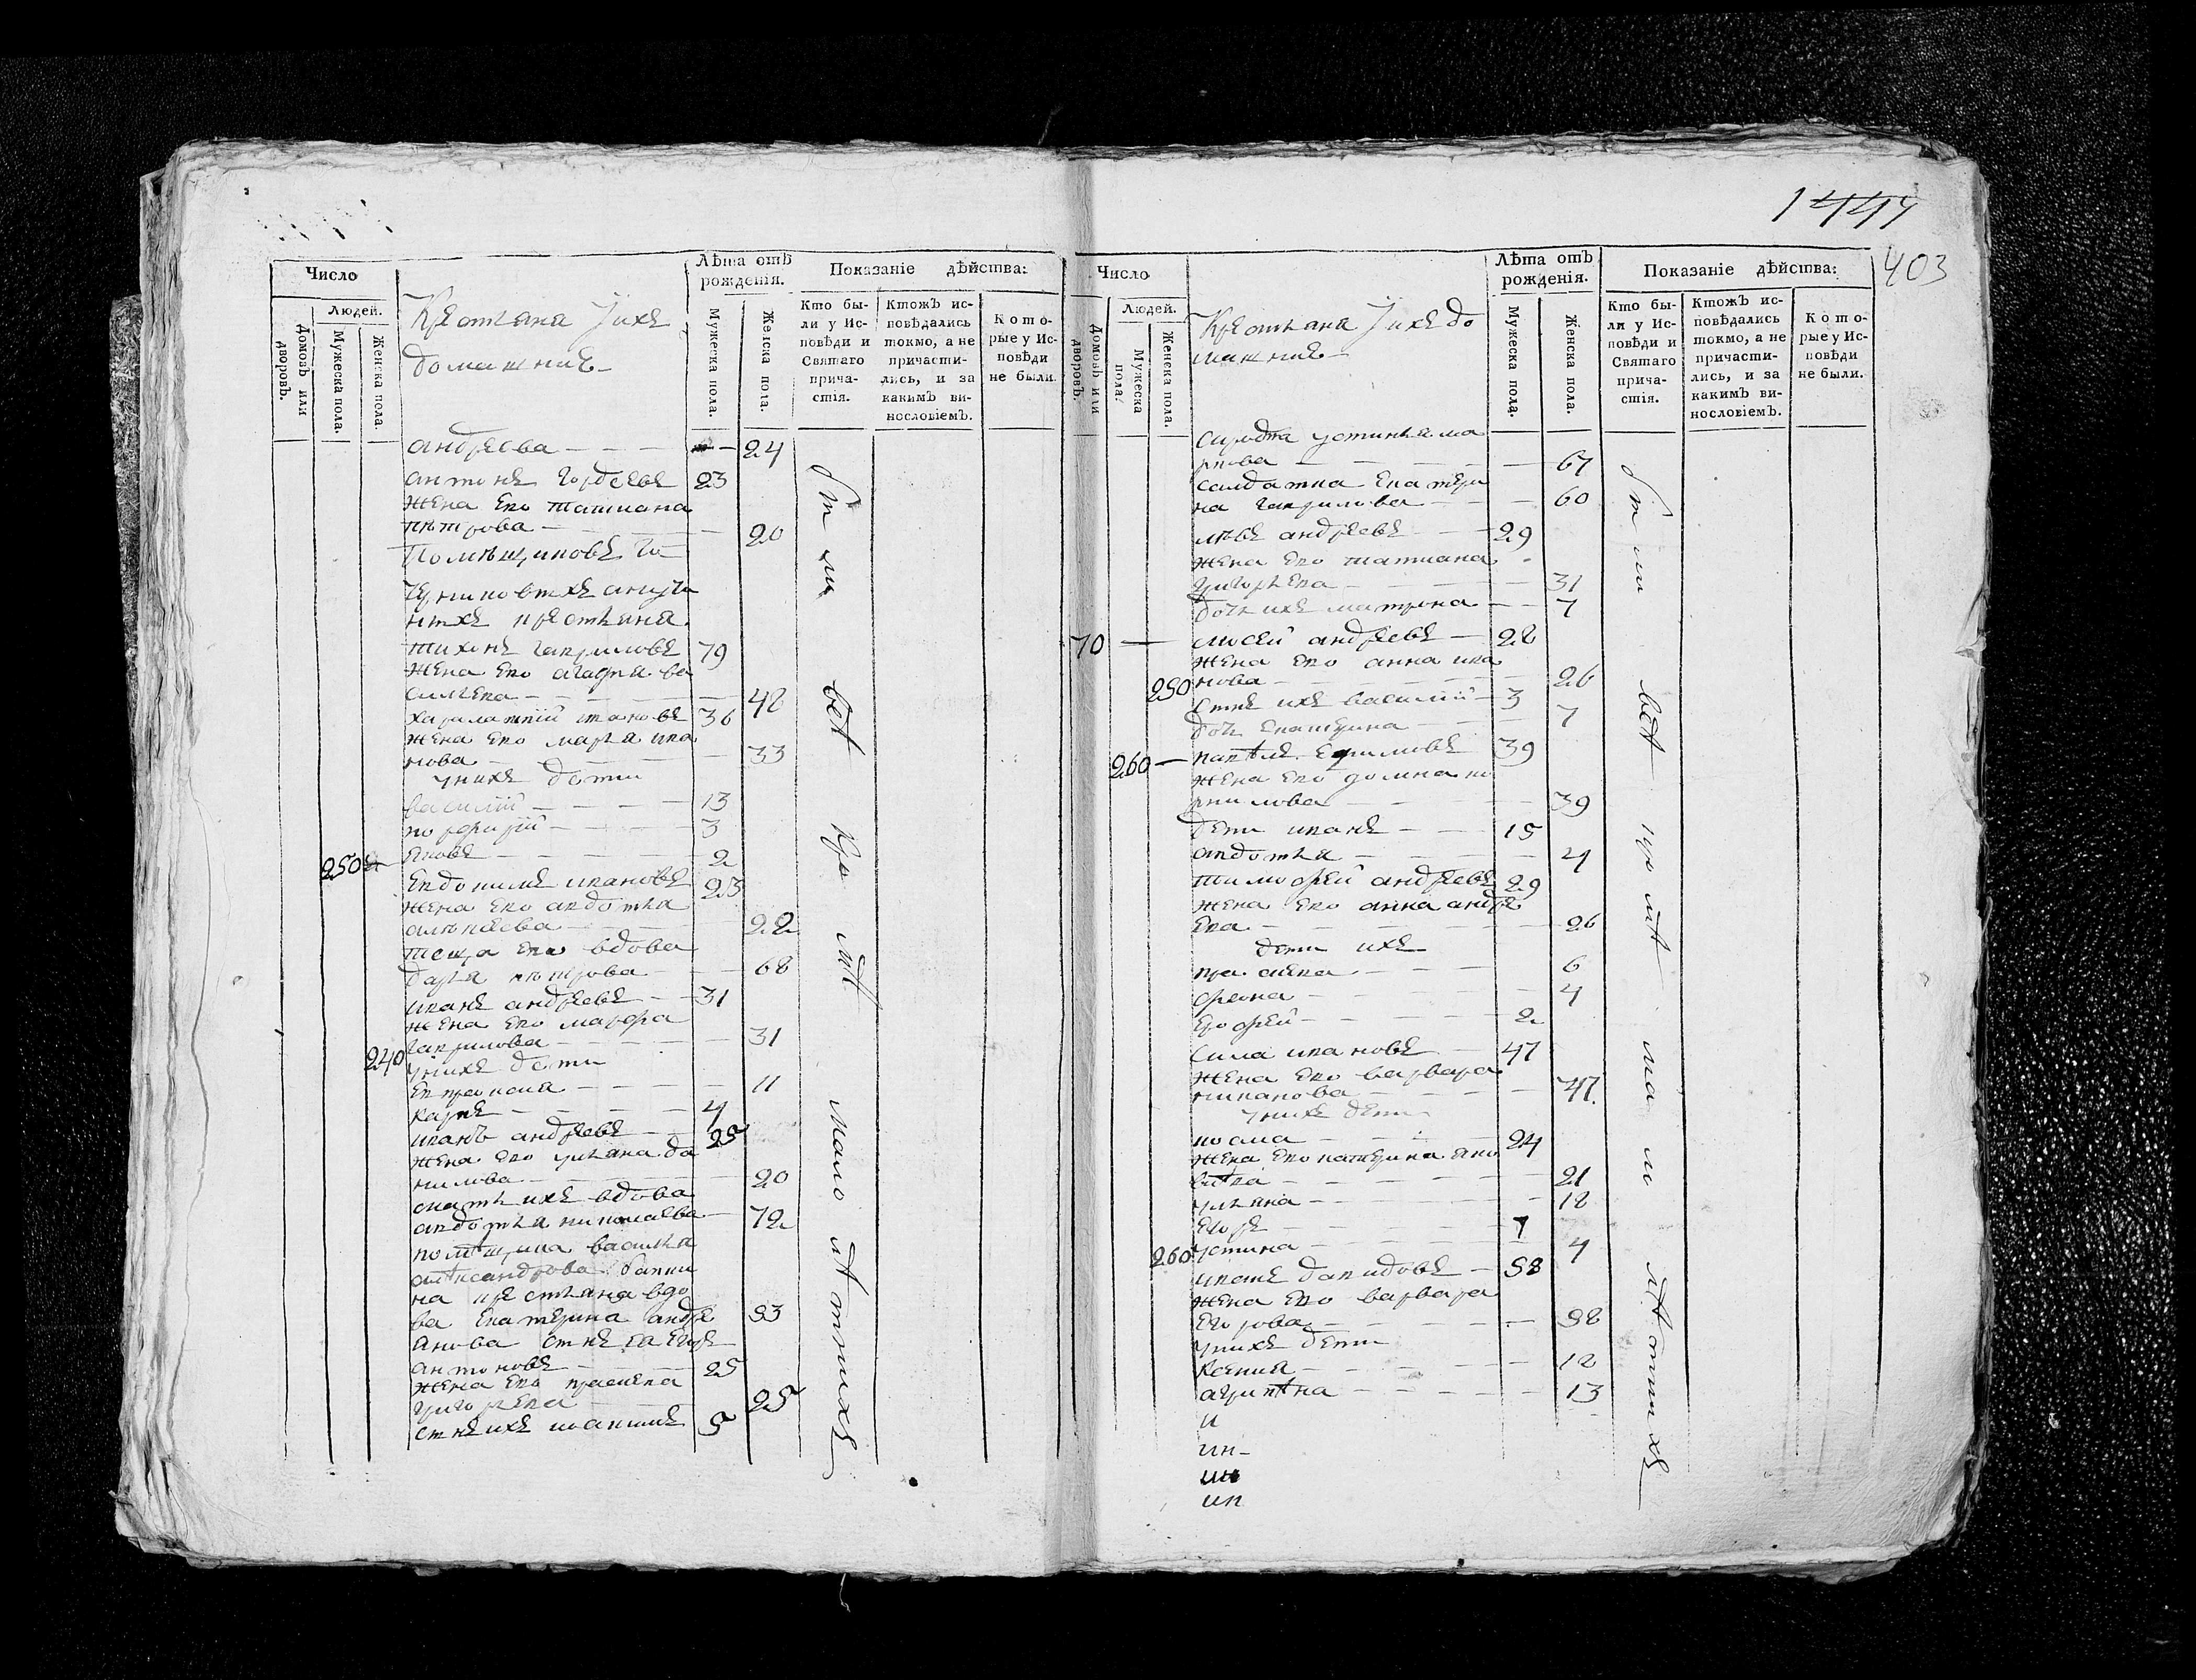 1447
403
Число
Людей.
Домовъ или дворовъ.
Мужеска пола.
Женска пола.
Крестьяня Ихъ
домашние
Лѣта отъ рожденія.
Мужеска пола.
Женска пола.
Показаніе дѣйства:
Кто бы-
ли у Ис-
повѣди и
Святаго
прича-
стія.
Ктожъ ис-
повѣдались
токмо, а не
причасти-
лись, и за
какимъ ви-
нословіемъ.
Кото-
рые у Ис-
повѣди
не были.
андреева — — — 24
антонъ гордеевъ 23
жена Ево татиана
петрова — — — 20
крестьяня
тихонъ гавриловъ 79
жена Ево агафия ва
сильева — — — 48
харлампий ивановъ 36
жена Ево марья ива
нова — — — 33
у них дети
василий — — — 13
порфирий — — — 3
250 яковъ — — — 2
Евдокимъ ивановъ 23
жена Ево авдотья
алексеева — — — 22
теща Ево вдова
дарья петрова — — 68
иванъ андреевъ — — 31
жена Ево марфа
гаврилова — — — 31
240 у нихъ дети
Евпраксия — — — 11
карпъ — — — 4
иванъ андреевъ — — 25
жена Ево ульяна да
нилова — — — 20
мать ихъ вдова
авдотья николаева — 72
помещика василья
александрова
на крестьяна вдо
ва Екатерина андре 53
янова сынъ Ея Егоръ
антоновъ — — — 25
жена Ево прасковя
григорьева — — — 25
сынъ ихъ максимъ 5
Число
Людей.
Домовъ или дворовъ.
Мужеска пола.
Женска пола.
Крестьяня Ихъ до
машние
Лѣта отъ рожденія.
Мужеска пола.
Женска пола.
Показаніе дѣйства:
Кто бы-
ли у Ис-
повѣди и
Святаго
прича-
стія.
Ктожъ ис-
повѣдались
токмо, а не
причасти-
лись, и за
какимъ ви-
нословіемъ.
Кото-
рые у Ис-
повѣди
не были.
сирота устинья ма
ркова — — — 67
салдатка Екатери
на гаврилова — — 60
левъ андреевъ — — 29
жена Ево татиана
григорьева — — — 31
дочь ихъ матрона — — 7
70 — мосей андреевъ — 28
жена Ево анна ива
250 нова — — — 26
сынъ ихъ василий — 3
дочь Екатерина — — 7
260 — павелъ Ефимовъ 39
жена Ево домна ки
рилова — — — 39
дети иванъ — — 15
авдотья — — — 4
тимофей андреевъ 29
жена Ево анна андре
Ева — — — 26
дети ихъ
прасковя — — — 6
фекла — — — 4
Ерофей — — — 2
сила ивановъ — 47
жена Ево варвара
— — — 47
у нихъ дети
косма — — — 24
жена Ево катерина яко
влева — — — 21
ульяна — — — 18
Егоръ — — — 7
260 устина — — — 4
иванъ давидовъ — 58
жена Ево варвара
Егорова — — — 58
у нихъ дети
Ксения — — — 18
агрипена — — — 13
и
ин-
ин
ин